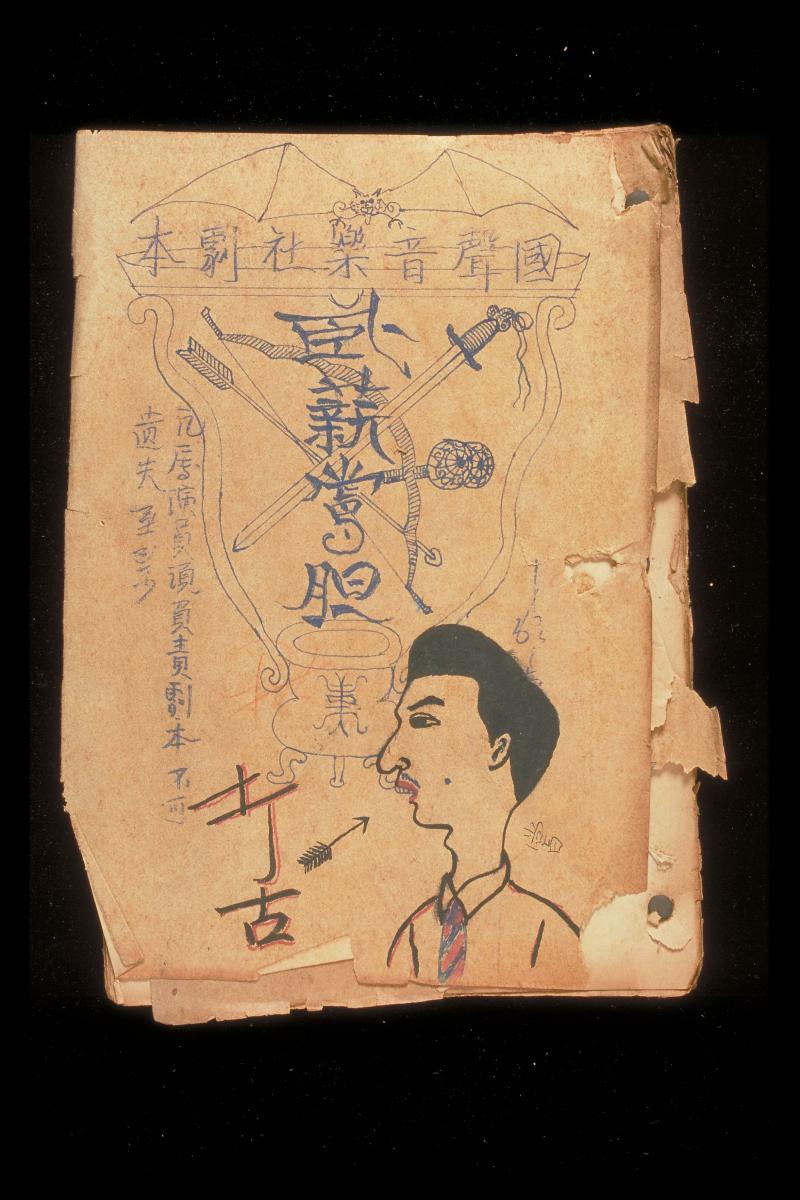 國聲音樂社劇本
臥薪嘗胆
凡屬演員須負責劇本不可
遺失至要
古